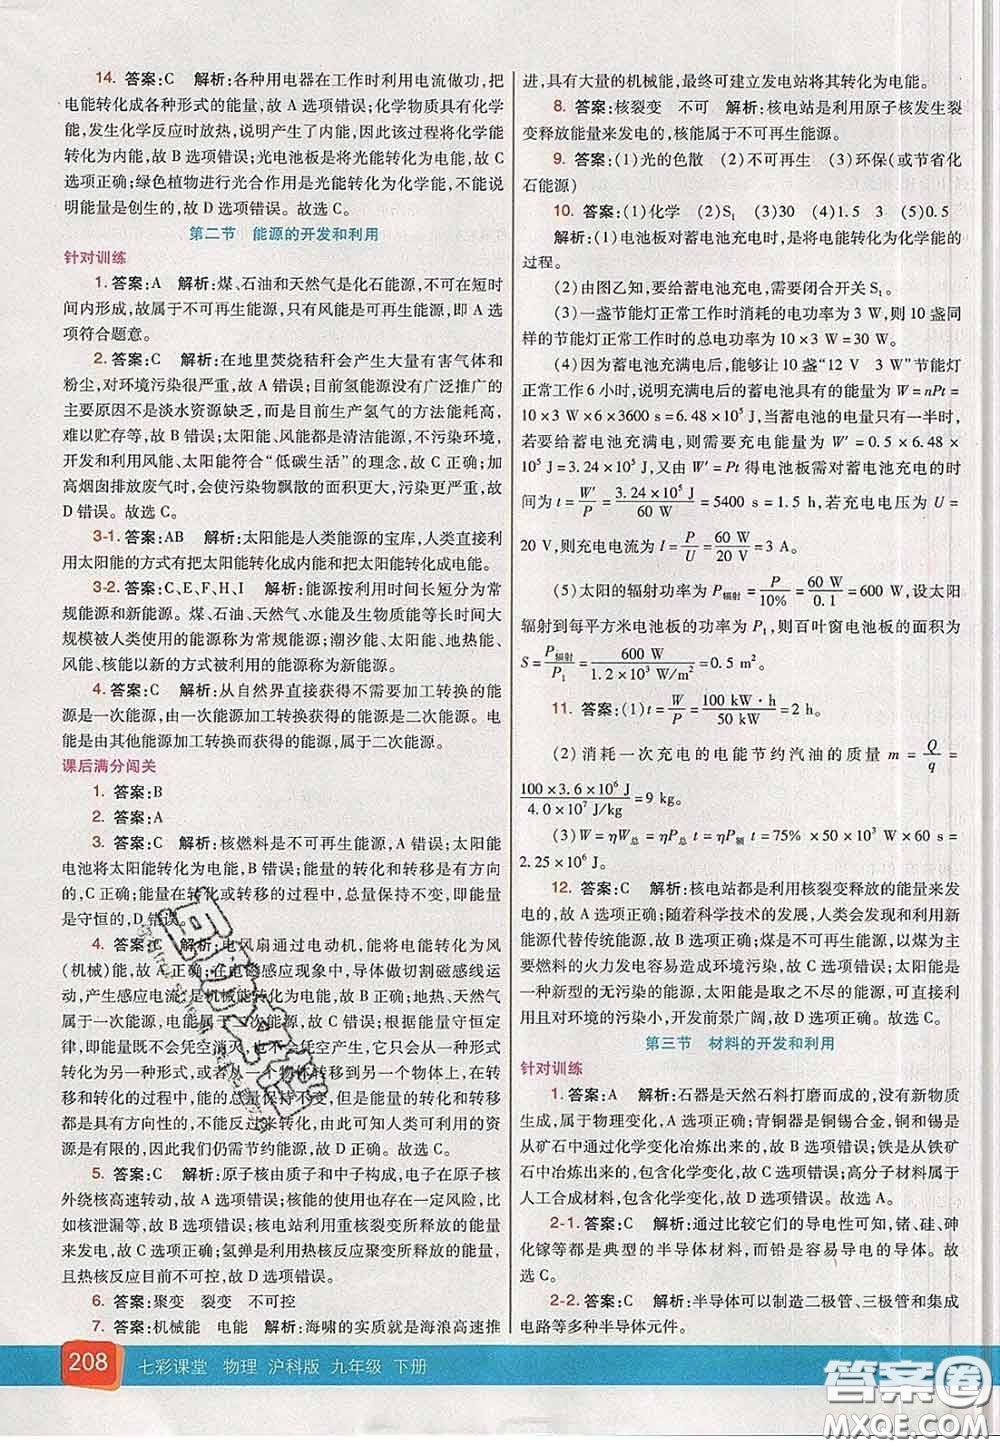 14. 答案:C　解析:各种用电器在工作时利用电流做功,把
电能转化成各种形式的能量,故 A 选项错误;化学物质具有化学
能,发生化学反应时放热,说明产生了内能,因此该过程将化学能
转化为内能,故 B 选项错误;光电池板是将光能转化为电能,故 C
选项正确;绿色植物进行光合作用是光能转化为化学能,不能说
明能量是创生的,故 D 选项错误。故选 C。
第二节　能源的开发和利用
针对训练
1. 答案:A　解析:煤、石油和天然气是化石能源,不可在短时
间内形成,故属于不可再生能源,只有风能是可再生能源,即 A 选
项符合题意。
2. 答案:C　解析:在地里焚烧秸秆会产生大量有害气体和
粉尘,对环境污染很严重,故 A 错误;目前氢能源没有广泛推广的
主要原因不是淡水资源缺乏,而是目前生产氢气的方法能耗高,
难以贮存等,故 B 错误;太阳能、风能都是清洁能源,不污染环境,
开发和利用风能、太阳能符合“低碳生活”的理念,故 C 正确;加
高烟囱排放废气时,会使污染物飘散的面积更大,污染更严重,故
D 错误。故选 C。
3-1. 答案:AB　解析:太阳能是人类能源的宝库,人类直接利
用太阳能的方式有把太阳能转化成内能和把太阳能转化成电能。
3-2. 答案:C、E、F、H、I　解析:能源按利用时间长短分为常
规能源和新能源。煤、石油、天然气、水能及生物质能等长时间大
规模被人类使用的能源称为常规能源;潮汐能、太阳能、地热能、
风能、核能以新的方式被利用的能源称为新能源。
4. 答案:C　解析:从自然界直接获得不需要加工转换的能
源是一次能源,由一次能源加工转换获得的能源是二次能源。电
能是由其他能源加工转换而获得的能源,属于二次能源。
课后满分闯关
1. 答案:B
2. 答案:A
3. 答案:C　解析:核燃料是不可再生能源,A 错误;太阳能
电池将太阳能转化为电能,B 错误;能量的转化和转移是有方向
的,C 正确;能量在转化或转移的过程中,总量保持不变,即能量
是守恒的,D 错误。
4. 答案:C　解析:电风扇通过电动机,能将电能转化为风
(机械)能,故 A 正确;在电磁感应现象中,导体做切割磁感线运
动,产生感应电流,是机械能转化为电能,故 B 正确;地热、天然气
属于一次能源,电能属于二次能源,故 C 错误;根据能量守恒定
律,即能不会凭空消灭,也不会凭空产生,它只会从一种形式
转化为另一种形式,或者从一个物体转移到另一个物体,在
转化和转移的过程中,能量的总量保持不变,但能的转化和转移
都是具有方向性的,不可能反过来转化,由此可知人类可利用的
资源是有限的,所以我们仍需节约能源,故 D 正确。故选 C。
5. 答案:C　解析:原子核由质子和中子构成,电子在原子核
外绕核高速转动,故 A 选项错误;核能的利用存在一定风险,比
如核泄漏等,故 B 选项错误;核电站利用重核裂变所释放的能量
来发电,故 C 选项正确;氢弹是利用热核反应聚变所释放的能量,
且热核反应目前不可控,故 D 选项错误。
6. 答案:聚变　裂变　不可控
7. 答案:机械能　电能　解析:海啸的实质就是海浪高速推
进,具有大量的机械能,最终可建立发电站将其转化为电能。
8. 答案:核裂变　不可　解析:核电站是利用原子核发生裂
变释放能量来发电的,核能属于不可再生能源。
9. 答案:(1)光的色散　(2)不可再生　(3)环保(或节省化
石能源)
10. 答案:(1)化学　(2)S₁　(3)30　(4)1.5　3　(5)0.5
解析:(1)电池板对蓄电池充电时,是将电能转化为化学能的
过程。
(2)由图乙知,要给蓄电池充电,需要闭合开关 S₁。
(3)一盏节能灯正常工作时消耗的电功率为 3 W,则 10 盏同
样的节能灯正常工作时的总电功率为 10×3 W=30 W。
(4)因为蓄电池充满电后,能够让 10 盏“12 V　3 W”节能灯
正常工作 6 小时,说明充满电后的蓄电池具有的能量为 W=nPt=
10×3 W×6×3600 s=6.48×10⁵ J,当蓄电池的电量只有一半时,
若要给蓄电池充满电,则需要充电能量为 W′=0.5×6.48×
10⁵ J=3.24×10⁵ J,又由 W′=Pt 得电池板需对蓄电池充电的时
间为 t=W′/P=3.24×10⁵ J/60 W=5400 s=1.5 h,若充电电压为 U=
20 V,则充电电流为 I=P/U=60 W/20 V=3 A。
(5)太阳的辐射功率为 P辐射=P/10%=60 W/0.1=600 W,设太阳
辐射到每平方米电池板的功率为 P₁,则百叶窗电池板的面积为
S=P辐射/P₁=600 W/1.2×10³ W/m²=0.5 m²。
11. 答案:(1)t=W/P=100 kW·h/50 kW=2 h。
(2)消耗一次充电的电能节约汽油的质量 m=Q/q=
100×3.6×10⁶ J/4.0×10⁷ J/kg=9 kg。
(3)W=ηW总=ηP总 t=ηP额 t=75%×50×10³ W×60 s=
2.25×10⁶ J。
12. 答案:C　解析:核电站都是利用核裂变释放的能量来发
电的,故 A 选项正确;随着科学技术的发展,人类会发现和利用新
能源代替传统能源,故 B 选项正确;煤是不可再生能源,以煤为主
要燃料的火力发电容易造成环境污染,故 C 选项错误;太阳能是
一种新型的无污染的能源,太阳能是取之不尽的能源,可直接利
用且对环境的污染小,开发前景广阔,故 D 选项正确。故选 C。
第三节　材料的开发和利用
针对训练
1. 答案:A　解析:石器是天然石料打磨而成的,没有新物质
生成,属于物理变化,A 选项正确;青铜器是铜锡合金,铜和锡是
从矿石中通过化学变化冶炼出来的,故 B 选项错误;铁是从铁矿
石中冶炼出来的,包含化学变化,故 C 选项错误;高分子材料属于
人工合成材料,包含化学变化,故 D 选项错误。故选 A。
2-1. 答案:C　解析:通过比较它们的导电性可知,锗、硅、砷
化镓等都是典型的半导体材料,而铅是容易导电的导体。故
选 C。
2-2. 答案:C　解析:半导体可以制造二极管、三极管和集成
电路等多种半导体元件。
208　七彩课堂　物理　沪科版　九年级　下册
答案圈
MXQE.COM